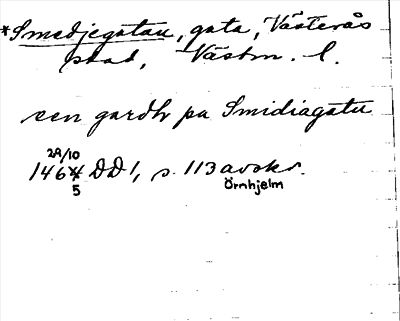 *Smedjegatan, gata, Västerås
stad, Västm. l.
een gardh pa Smidiagatu
29/10
1464 DD 1, s. 113 avskr.
5 Örnhjelm